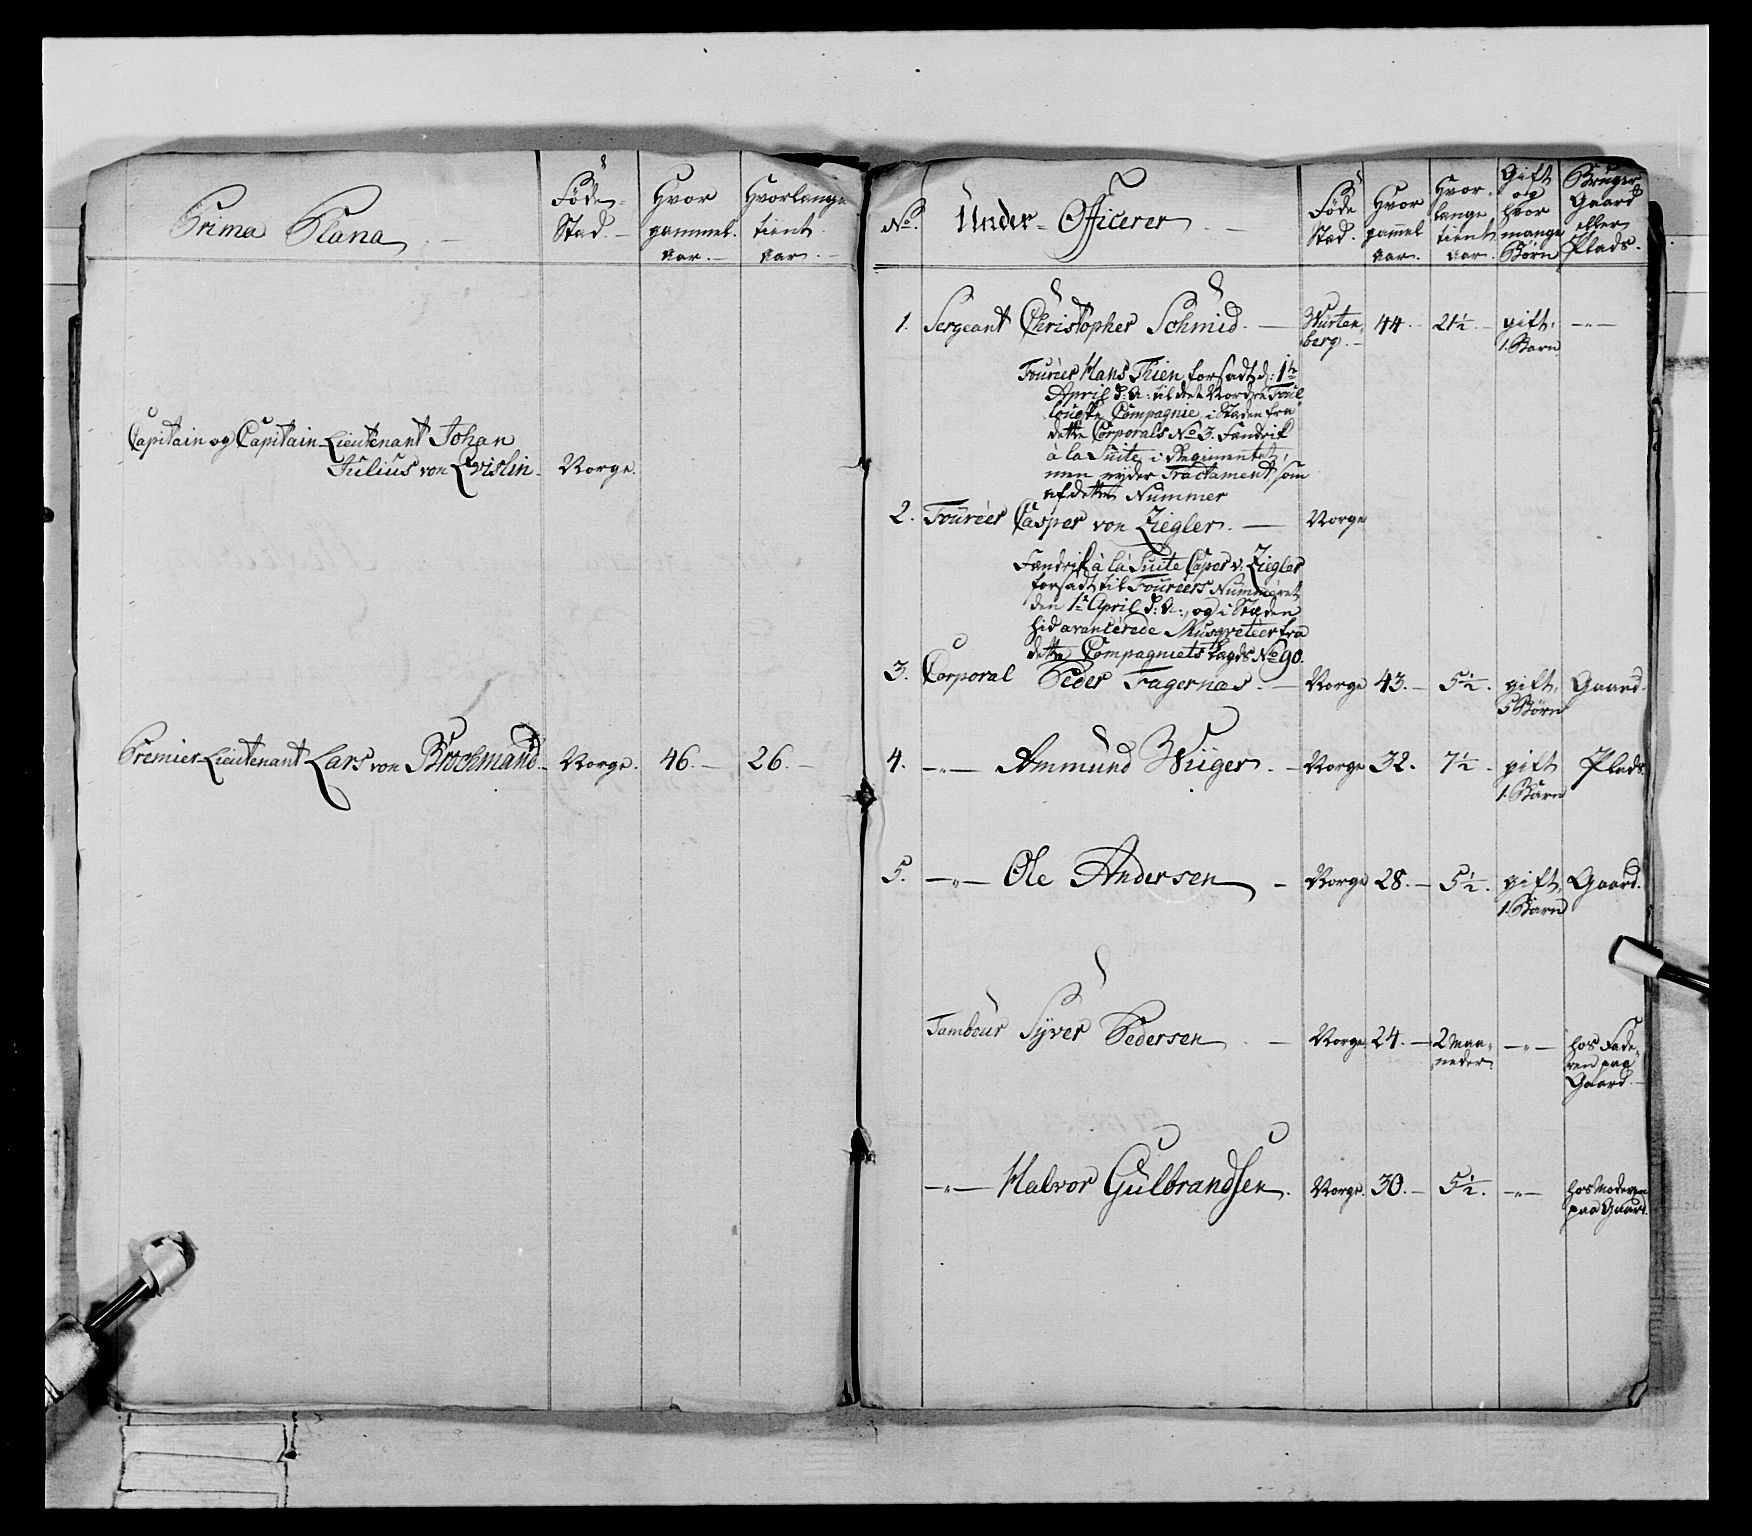 Prima Plana.
Føde-
Stad.
Hvor
gammel.
aar.
Hvorlange
tient.
aar.
Capitain og Capitain-Lieutenant Johan
Julius von Qvislin. Norge.
Premier-Lieutenant Lars von Brochmand. Norge. 46. 26.
No.
Under-Officerer
Føde
Stad.
Hvor
gammel
aar.
Hvor
lange
tient
aar.
Gift
og
hvor
mange
Børn
Bruger
Gaard
eller
Plads.
1. Sergeant Christopher Schmid. Würten- 44. 21½. gift, —"—
berg. 1. Barn
Fourèer Hans Thien forsadt d: 1te
April d: A: til det Nordre
Compagnie, i Staden fra
dette Corporals No 3. Fændrik
à la Suite i Regimentet,
men nyder Tractament som
af dette Nummer
2. Fourèer Casper von Ziegler. Norge
Fændrik à la Suite Casper v. Ziegler
forsadt til Fourèers Nummeret
den 1te April d: A:, og i Staden
hid avancerede Musqveteer fra
dette Compagniets Lægds No 90.
3. Corporal Peder Fagernæs. Norge 43. 5½. gift, Gaard.
5 Børn
4. —"— Ammund Wiiger. Norge 32. 7½. gift Plads.
1. Barn
5. —"— Ole Andersen Norge 28. 5½. gift, Gaard.
1. Barn
Tambour Syver Pedersen Norge. 24. 2 Maa- —"— hos Fade-
neder. ren paa
Gaard.
—"— Halvor Gulbrandsen. Norge. 30. 5½. —"— hos Moderen
paa Gaard.